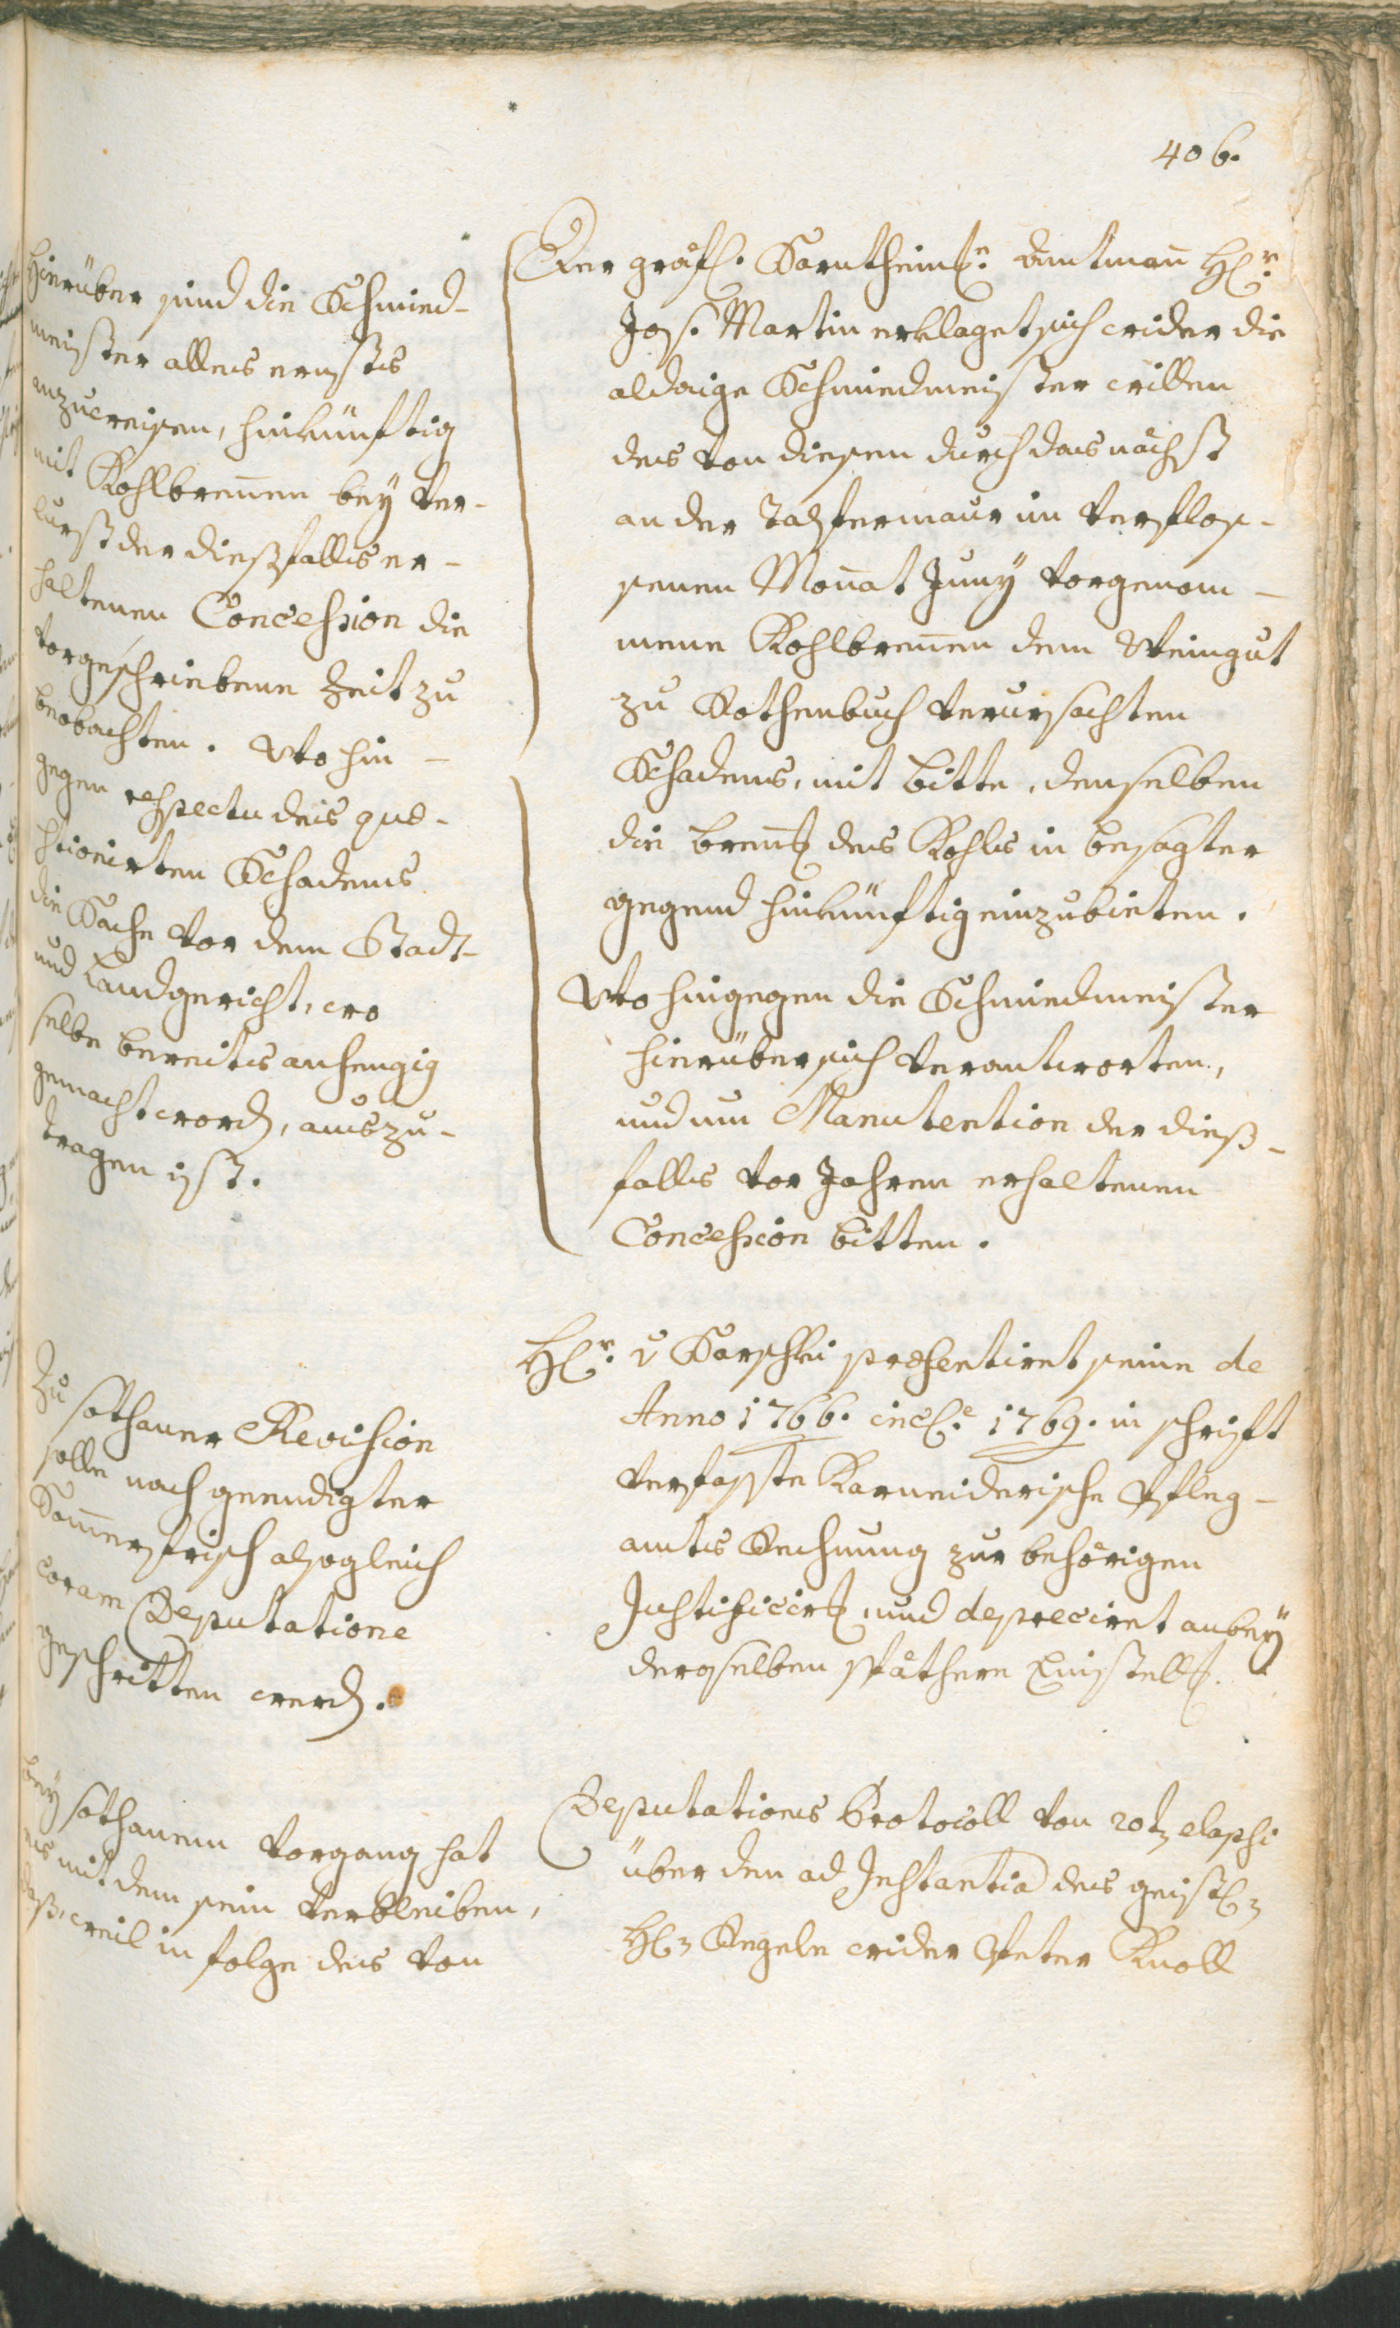 406.
Hierüber sind die Schmied-
meister alles ernstes
anzuweisen, hinkünftig
mit Kohlbrennen bey Ver-
lurst der dießfalls er-
haltenen Concession die
vorgeschriebene Zeit zu
beobachten. Wo hin-
gegen respectu des que-
stionirten Schadens
die Sache vor dem Stadt-
und Landgericht, wo
selbe bereits anhengig
gemacht word, auszu-
tragen ist.
Der gräfl. Sarntheinl. Amtmann H.
Jos. Martin erklaget sich wider die
aldaige Schmiedmeister willen
des von diesen durch das nächst
an der Talfermaur im verflos-
senen Monat Juny vorgenom-
mene Kohlbrennen dem Weingut
zu Rothenbuch verursachten
Schadens, mit bitte, denselben
die brennung des Kohls in besagter
gegend hinkünftig einzubieten.
Wo hingegen die Schmiedmeister
hierüber sich verantworten,
und um Manutention der dieß-
falls vor Jahren erhaltenen
Concession bitten.
Zu sothaner Revision
solle nach geendigter
Sommerfrisch alsogleich
coram Deputatione
geschritten werd.
H. v Karschi praesentiret seine de
Anno 1766. incl. 1769. in schrift
verfasste Karneiderische Pfleg-
amts Rechnung zur behörigen
Justificirung, und depreciret anbey
deroselben spätere Einstellung.
bey sothanem Vorgang hat
es mit dem sein Verbleiben,
daß, weil in folge des von
Deputations Protocoll von 20t elapsi
über den ad Instantia des geistl.
H. Regele wider Peter Knoll